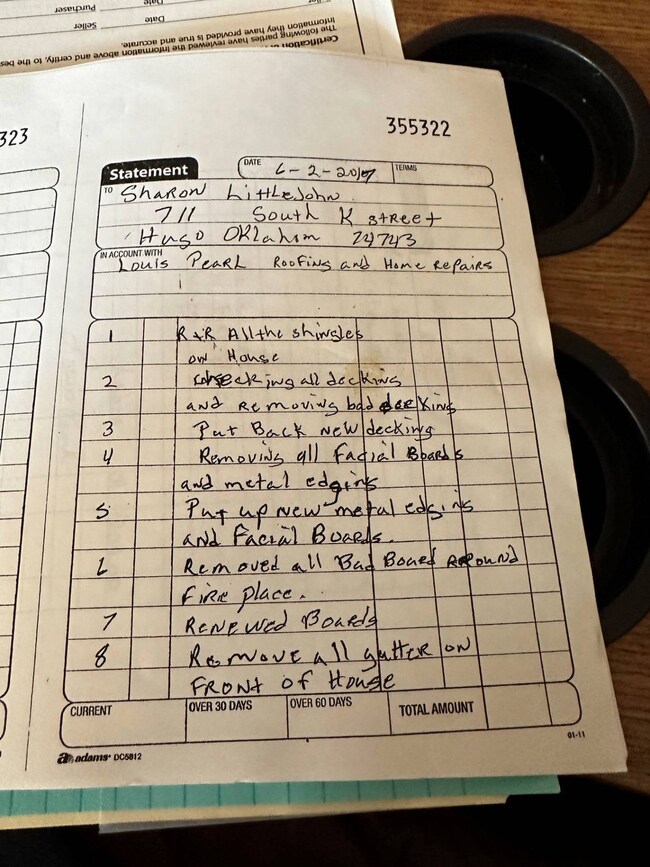 Seller
Date
Purchaser
Date
Seller
Date
The following parties have reviewed the information above and certify, to the best
information they have provided is true and accurate.
323
355322
Statement
DATE 6-2-2017
TERMS
TO Sharon LittleJohn
711 South K street
Hugo Oklahom 74743
IN ACCOUNT WITH
Louis Pearl Roofing and Home Repairs
1 R&R All the shingles
on House
2 checking all decking
and Removing bad decking
3 Put Back new decking
4 Removing all Facial Boards
and metal edgins
5 Put up new metal edgins
and Facial Boards.
6 Removed all Bad Board Around
Fire place.
7 Renewed Boards
8 Remove all gutter on
Front of House
CURRENT
OVER 30 DAYS
OVER 60 DAYS
TOTAL AMOUNT
adams DC5812
01-11